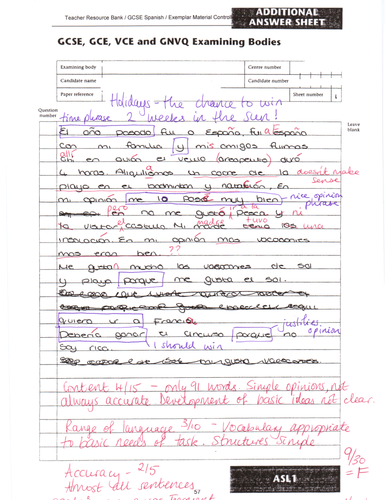 Teacher Resource Bank / GCSE Spanish / Exemplar Material Control
ADDITIONAL
ANSWER SHEET
GCSE, GCE, VCE and GNVQ Examining Bodies
Examining body
Centre number
Candidate name
Candidate number
Paper reference
Sheet number
Holidays - the chance to win
time phrase 2 weeks in the sun!
Question
number
Leave
blank
El año pasado fui a España, fui a España
con mi familia y mis amigos fuimos
allí
en avión el vuelo
4 horas. Alquilamos un coche de la doesn't make
sense
playa en el badminton y natación. En
mi opinión me lo pasé muy bien - nice opinion
phrase
pero
en no me gustó pesca y ni
la visitar castillo. Mi madre tuvo una
En mi opinión mas vacaciones
mas eran bien. ??
Me gustan mucho las vacaciones de sol
y playa porque me gusta el sol.
quiero ir a Francia
justifies
opinion
Debería ganar el concurso porque no
soy rico. I should win
Content 4/15 - only 91 words. Simple opinions, not
always accurate. Development of basic ideas not clear.
Range of language 3/10 - Vocabulary appropriate
to basic needs of task. Structures simple
9/30
= F
Accuracy - 2/5
Almost all sentences
57
ASL1